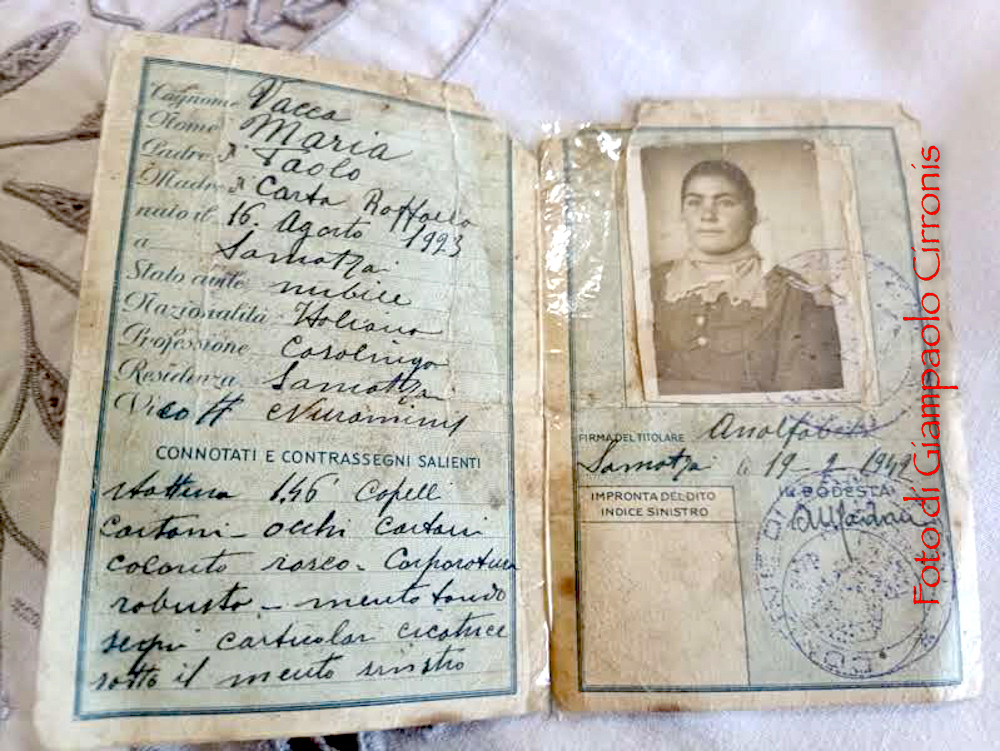 Cognome Vacca
Nome MARIA
Padre di Paolo
Madre di Carta Raffaela
nato il 16. Agosto 1923
a Samatzai
Stato civile nubile
Nazionalità Italiana
Professione Casalinga
Residenza Samatzai
Via Nuraminis
CONNOTATI E CONTRASSEGNI SALIENTI
statura 1.46 Capelli
castani occhi castani
colorito roseo - Corporatura
robusta - mento tondo
segni particolari cicatrice
sotto il mento sinistro
FIRMA DEL TITOLARE Analfabeta
Samatzai li 19-2 1942
IMPRONTA DEL DITO
INDICE SINISTRO
IL PODESTA
Foto di Giampaolo Cirronis